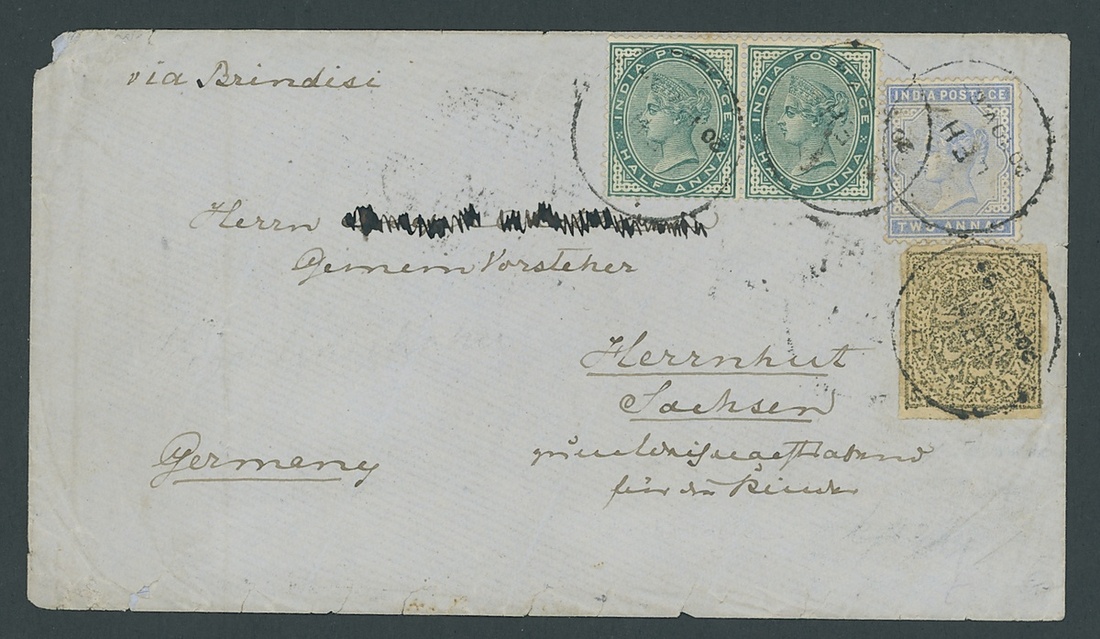 via Brindisi
INDIA POSTAGE
HALF ANNA
INDIA POSTAGE
HALF ANNA
INDIA POSTAGE
TWO ANNAS
LEH
Herrn
Gemein Vorsteher
Herrnhut
Sachsen
Germany
für die Kinder